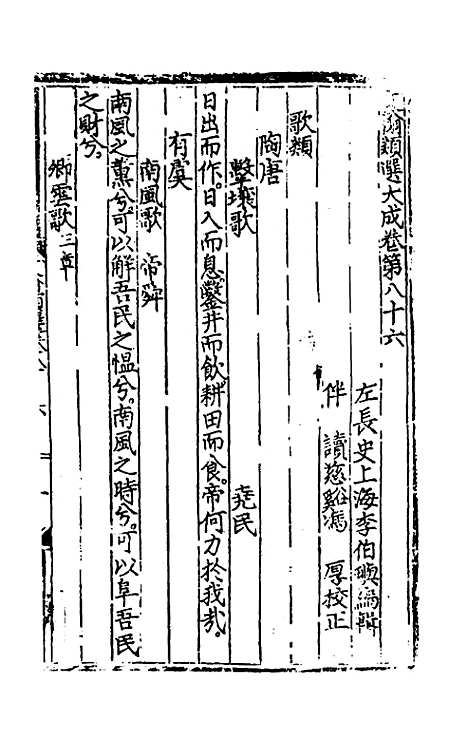 翰類選大成卷第八十六
左長史上海李伯璵編輯
伴　讀慈谿馮　厚校正
歌類
陶唐
擊壤歌　堯民
日出而作。日入而息。鑿井而飲。耕田而食。帝何力於我哉。
有虞
南風歌　帝舜
南風之薰兮。可以解吾民之愠兮。南風之時兮。可以阜吾民
之財兮。
卿雲歌三章